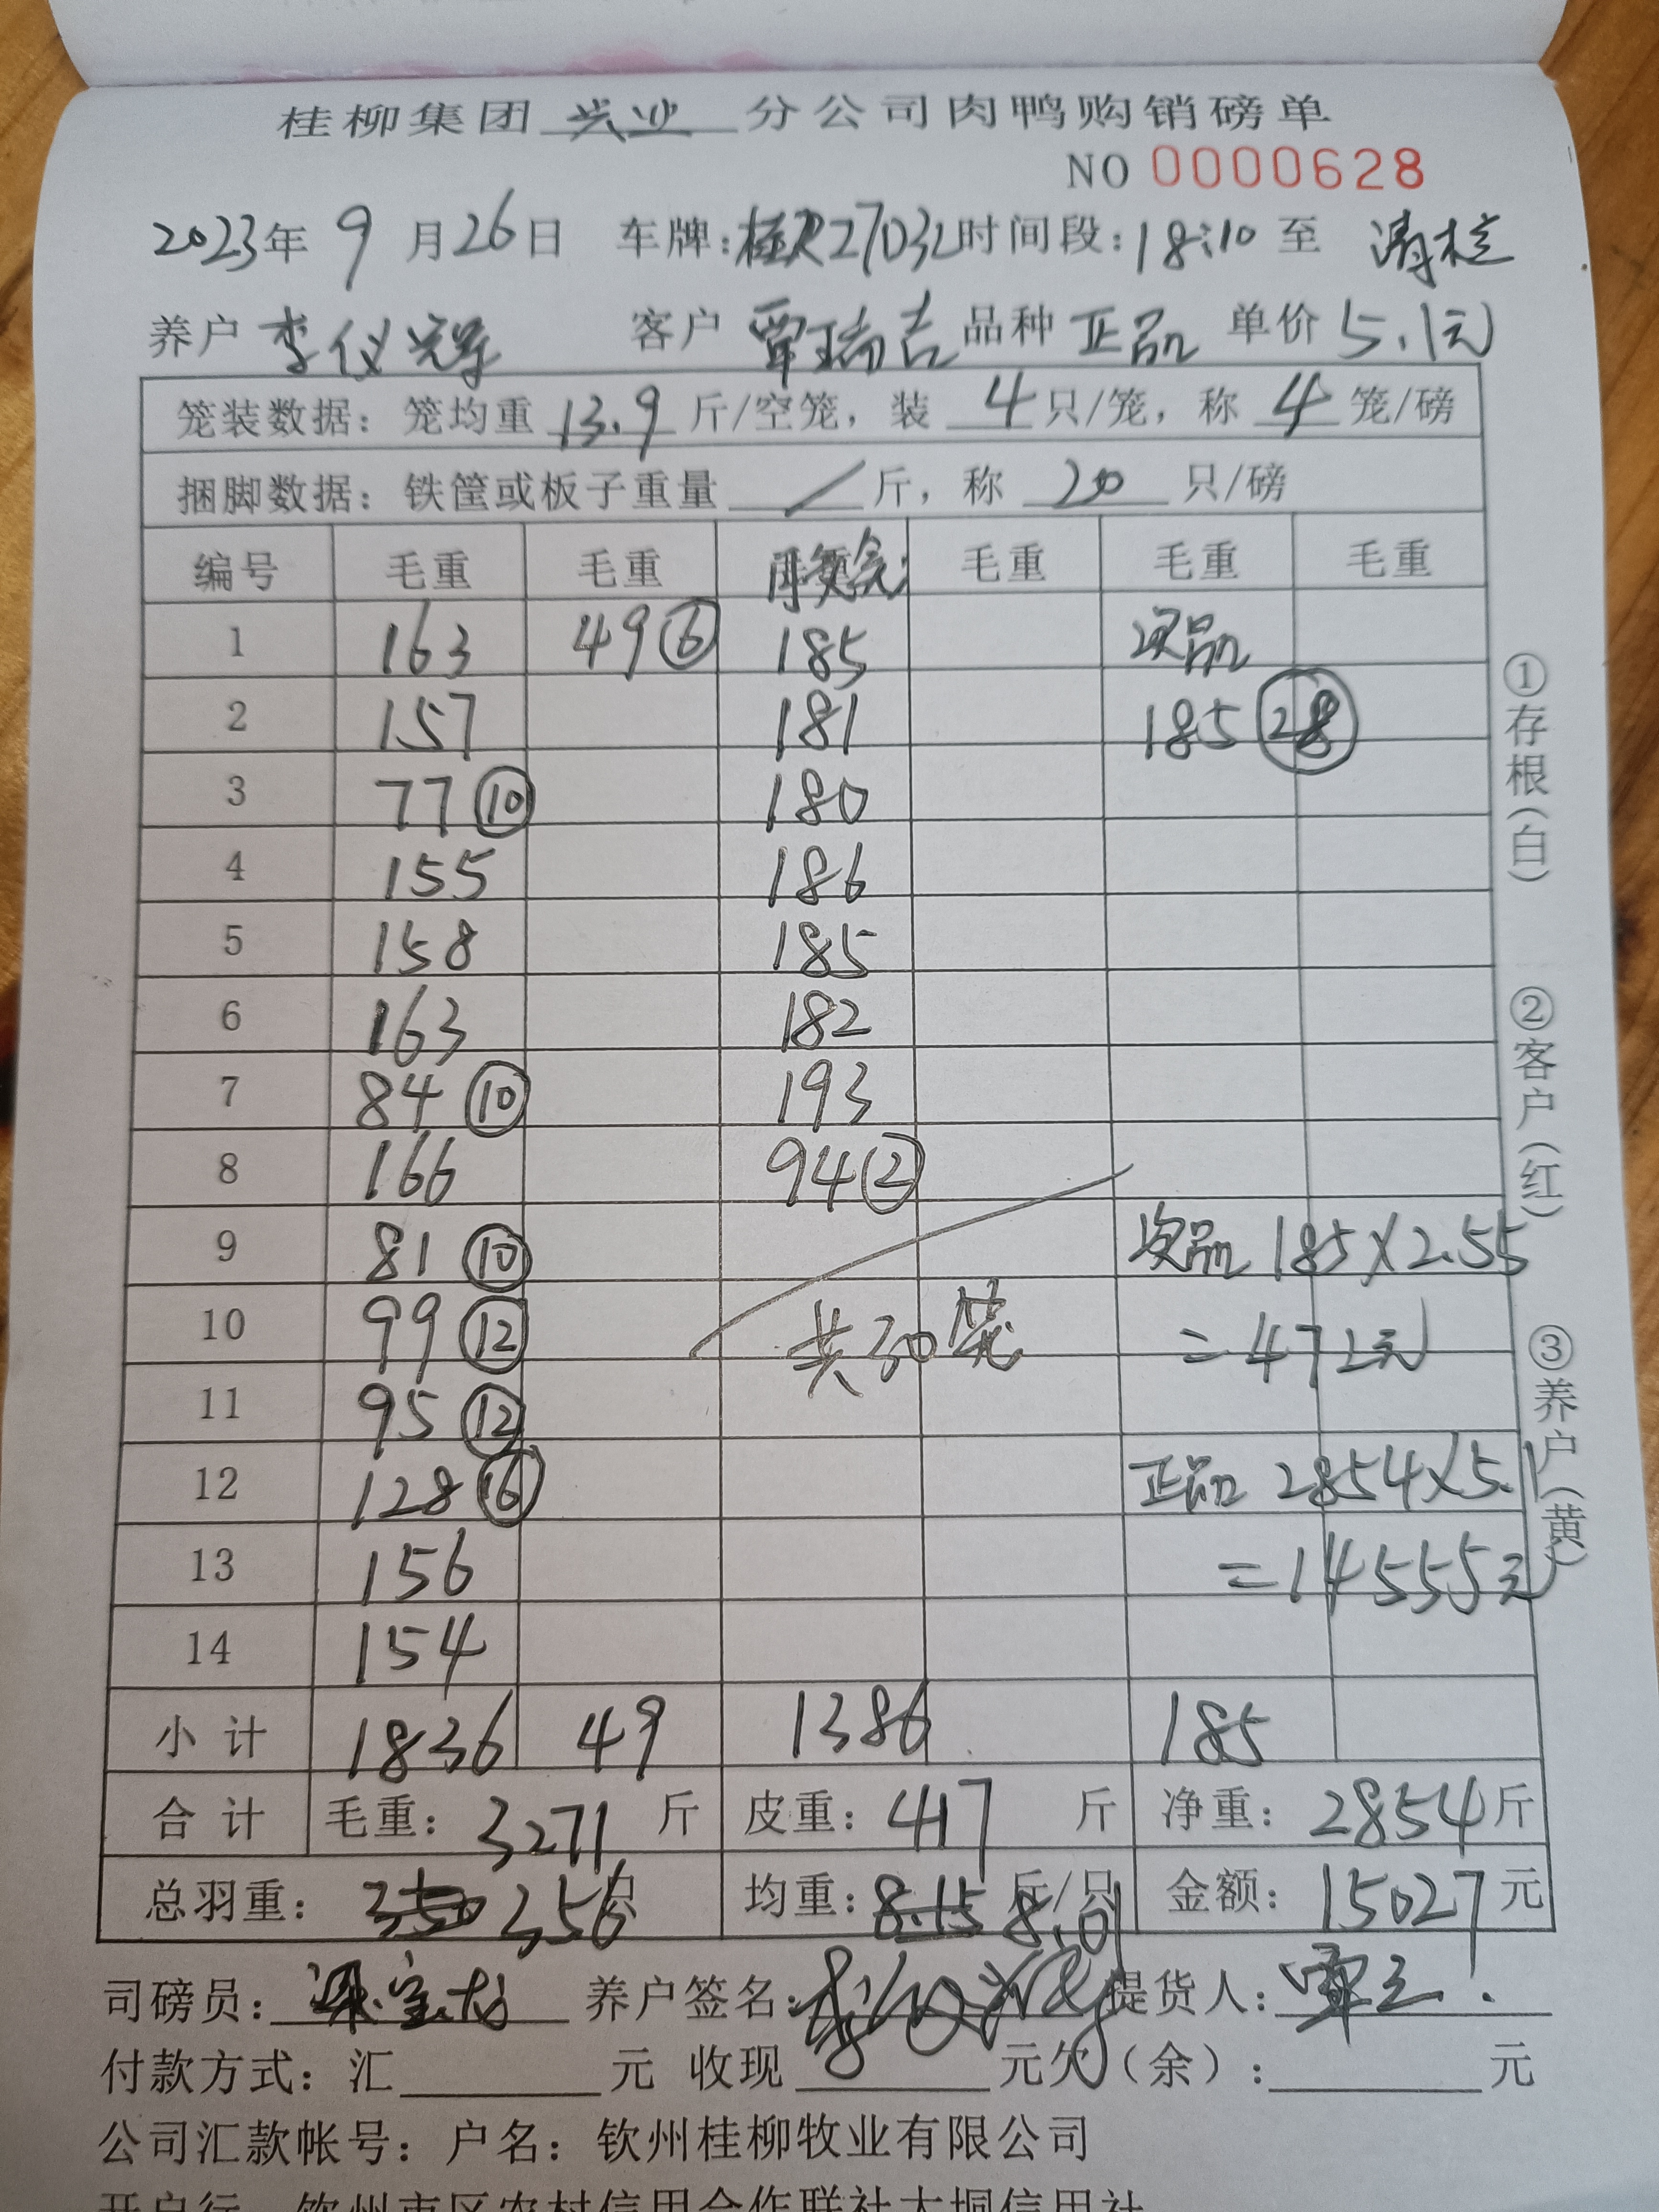 桂柳集团 兴业 分公司肉鸭购销磅单
NO 0000628
2023年 9 月 26 日 车牌: 时间段: 18:10 至 清栏
养户 李仪 客户 覃瑞吉 品种 正品 单价 5.1元
笼装数据: 笼均重 13.9 斤/空笼, 装 4 只/笼, 称 4 笼/磅
捆脚数据: 铁筐或板子重量 / 斤, 称 20 只/磅
编号 毛重 毛重 毛重 毛重 毛重
1 163 49 ⑥ 185 次品
2 157 181 185 ㉘
3 77 ⑩ 180
4 155 186
5 158 185
6 163 182
7 84 ⑩ 193
8 166 94 ②
9 81 ⑩ 次品 185×2.55
10 99 ⑫ 共30笼 =472元
11 95 ⑫
12 128 ⑯ 正品 2854×5.1
13 156 =14555元
14 154
小计 1836 49 1386 185
合计 毛重: 3271 斤 皮重: 417 斤 净重: 2854 斤
总羽重: 350 356 只 均重: 8.15 8.01 斤/只 金额: 15027 元
司磅员: 养户签名: 提货人:
付款方式: 汇 元 收现 元欠(余): 元
公司汇款帐号: 户名: 钦州桂柳牧业有限公司
开户行 钦州市区农村信用合作联社大垌信用社
①存根(白)
②客户(红)
③养户(黄)